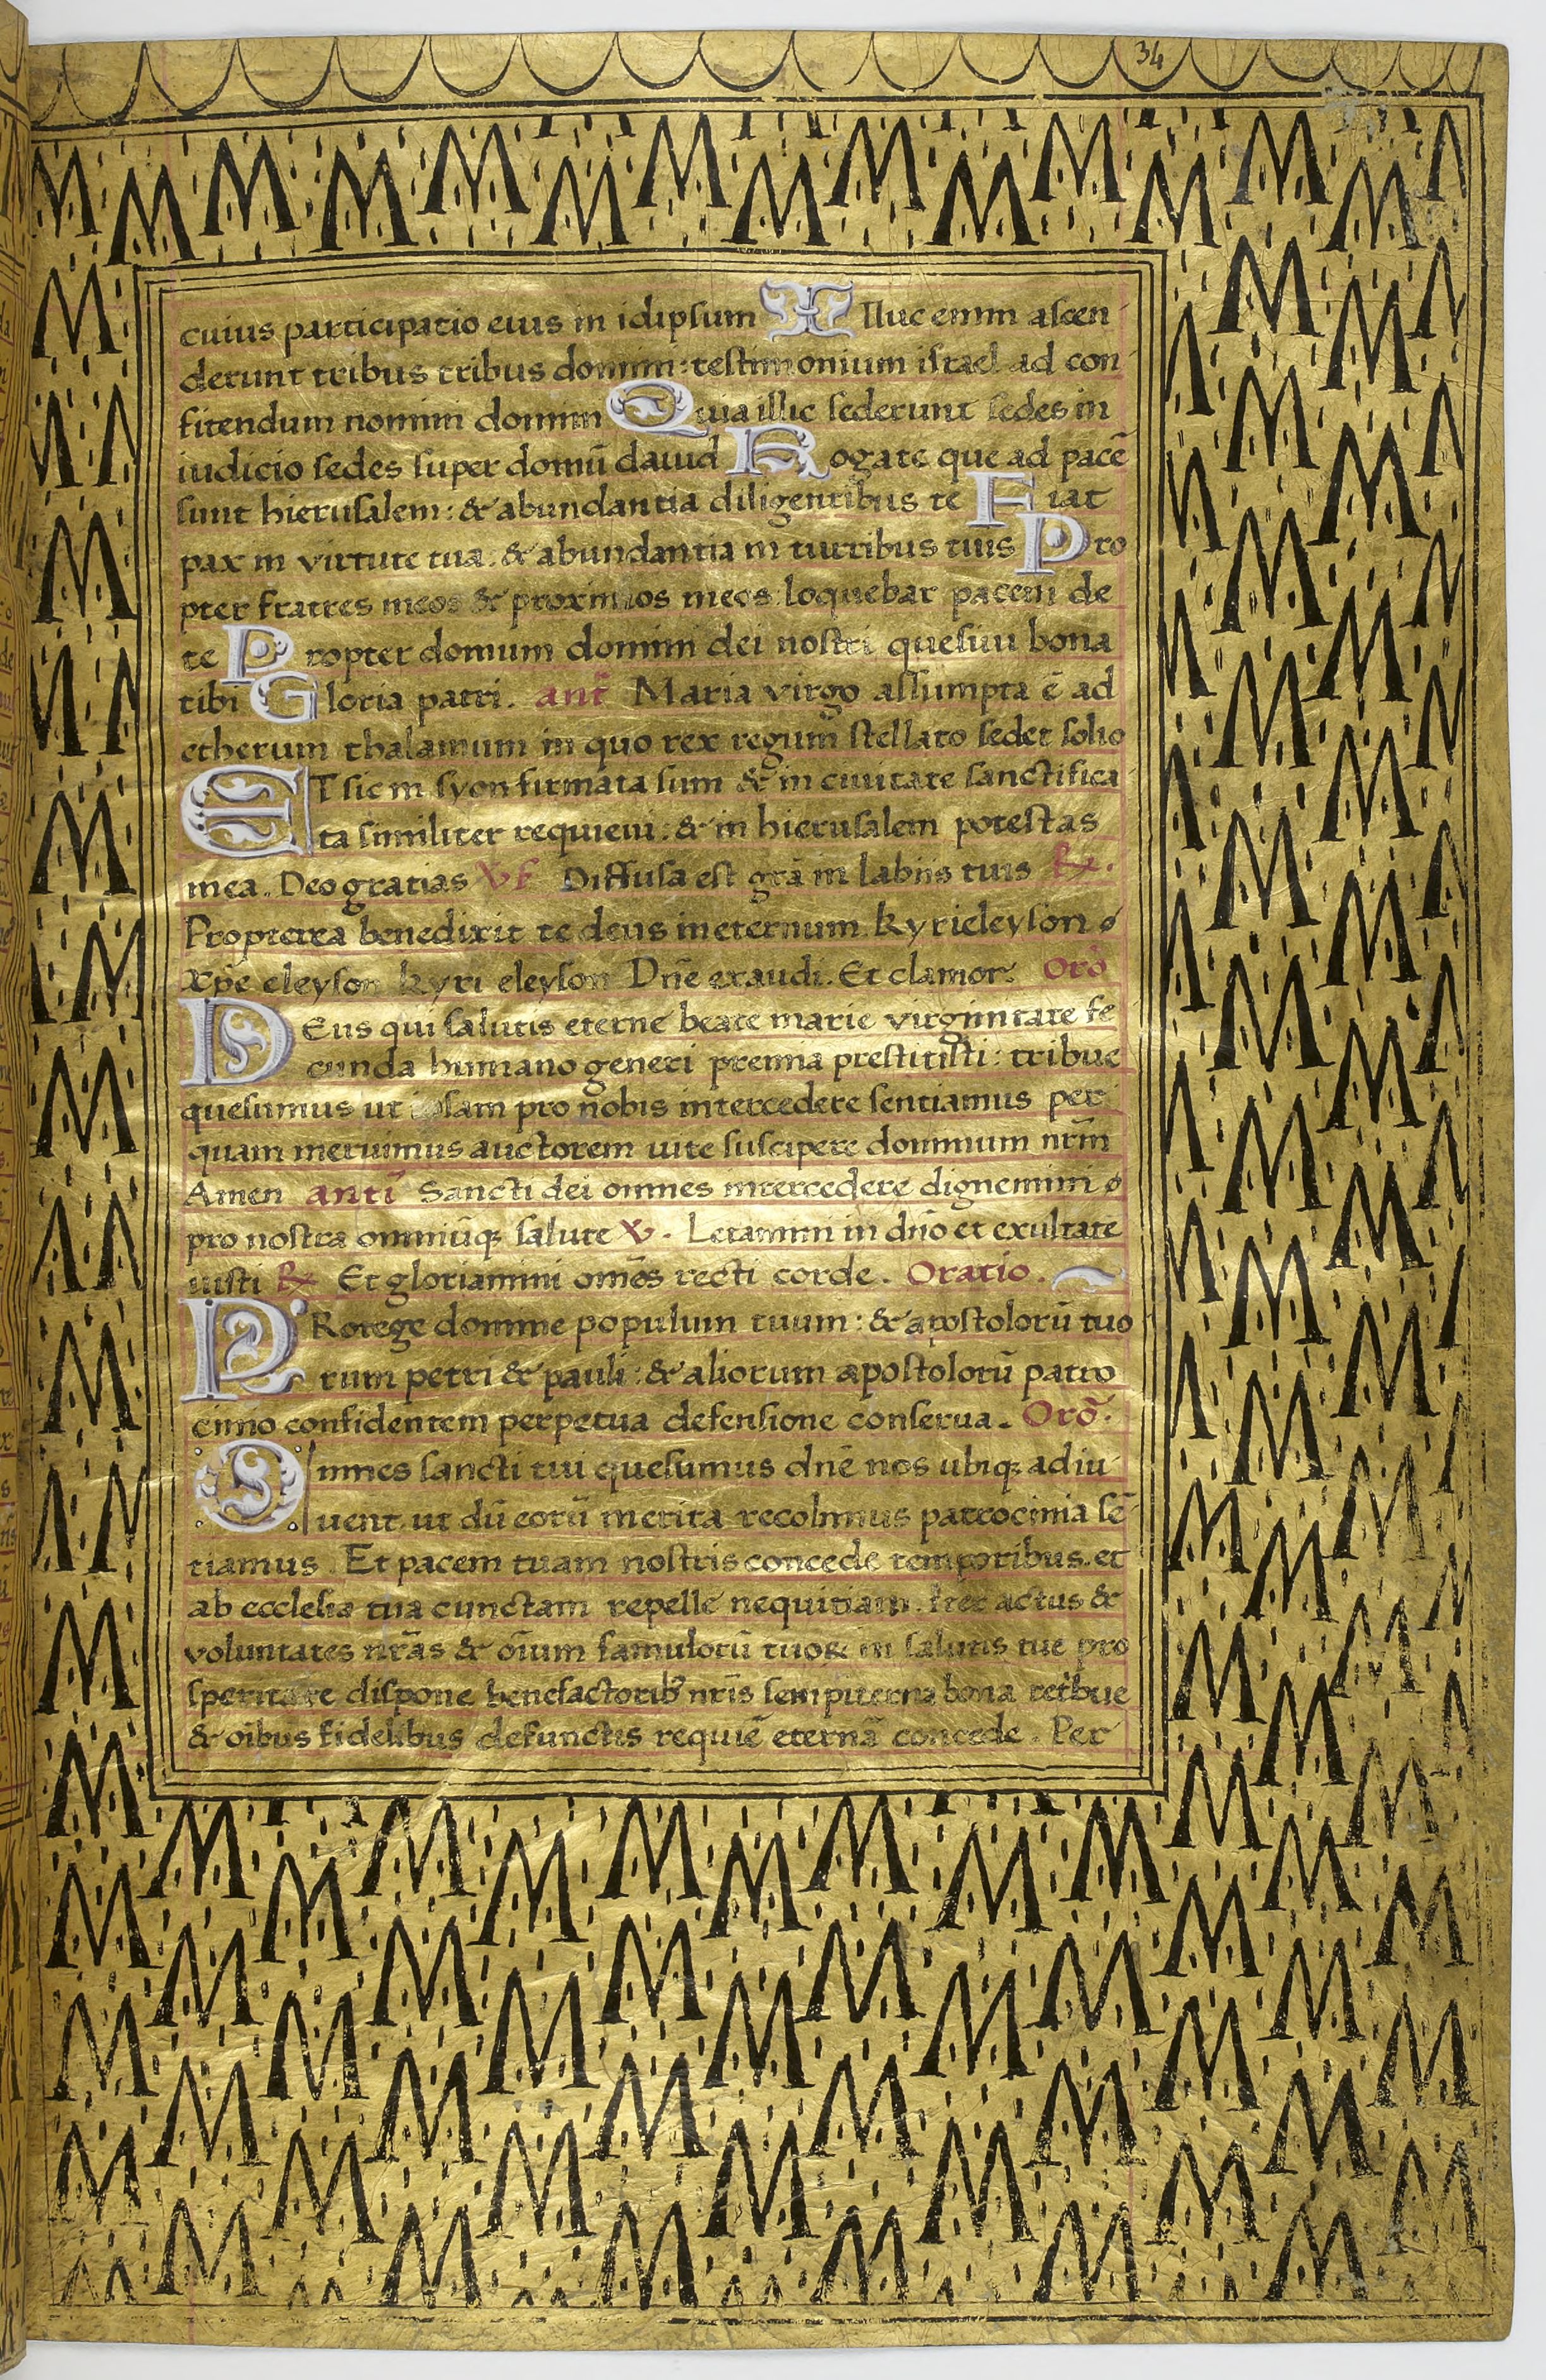 34
cuius participatio eius in idipsum Illuc enim ascen
derunt tribus tribus domini: testimonium israel ad con
fitendum nomini domini Quia illic sederunt sedes in
iudicio sedes super domū dauid Rogate que ad pacē
sunt hierusalem: & abundantia diligentibus te Fiat
pax in virtute tua: & abundantia in turribus tuis Pro
pter fratres meos & proximos meos loquebar pacem de
te Propter domum domini dei nostri quesiui bona
tibi Gloria patri. ant̄ Maria virgo assumpta ē ad
etherum thalamum in quo rex regum stellato sedet solio
ET sic in syon firmata sum & in ciuitate sanctifica
ta similiter requieui: & in hierusalem potestas
mea. Deo gratias Vs Diffusa est grā in labiis tuis ℟.
Propterea benedixit te deus in eternum. kyrieleyson
xp̄e eleyson kyri eleyson Dn̄e exaudi. Et clamor. Orō
DEus qui salutis eterne beate marie virginitate fe
cunda humano generi premia prestitisti: tribue
quesumus ut ipsam pro nobis intercedere sentiamus per
quam meruimus auctorem uite suscipere dominum nr̄m
Amen anti Sancti dei omnes intercedere dignemini
pro nostra omniūq; salute V. Letamini in dn̄o et exultate
iusti ℟ Et gloriamini omēs recti corde. Oratio.
PRotege domine populum tuum: & apostolorū tuo
rum petri & pauli: & aliorum apostolorū patro
cinio confidentem perpetua defensione conserua. Orō.
Omnes sancti tui quesumus dn̄e nos ubiq; adiu
uent. ut dū eorū merita recolimus patrocinia sē
tiamus. Et pacem tuam nostris concede temporibus. et
ab ecclesia tua cunctam repelle nequitiam. Iter actus &
voluntates nr̄as & oīum famulorū tuoꝝ in salutis tue pro
speritate dispone benefactorib; nr̄is sempiterna bona retbue
& oībus fidelibus defunctis requiē eternā concede. Per